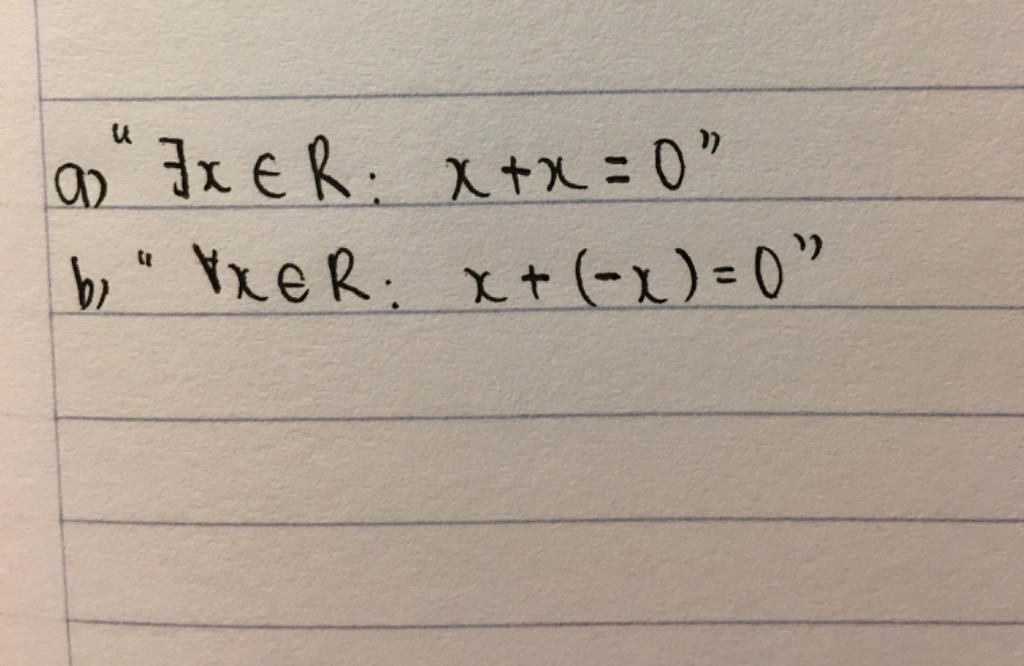 a) “ ∃x ∈ R: x + x = 0 ”
b) “ ∀x ∈ R: x + (-x) = 0 ”